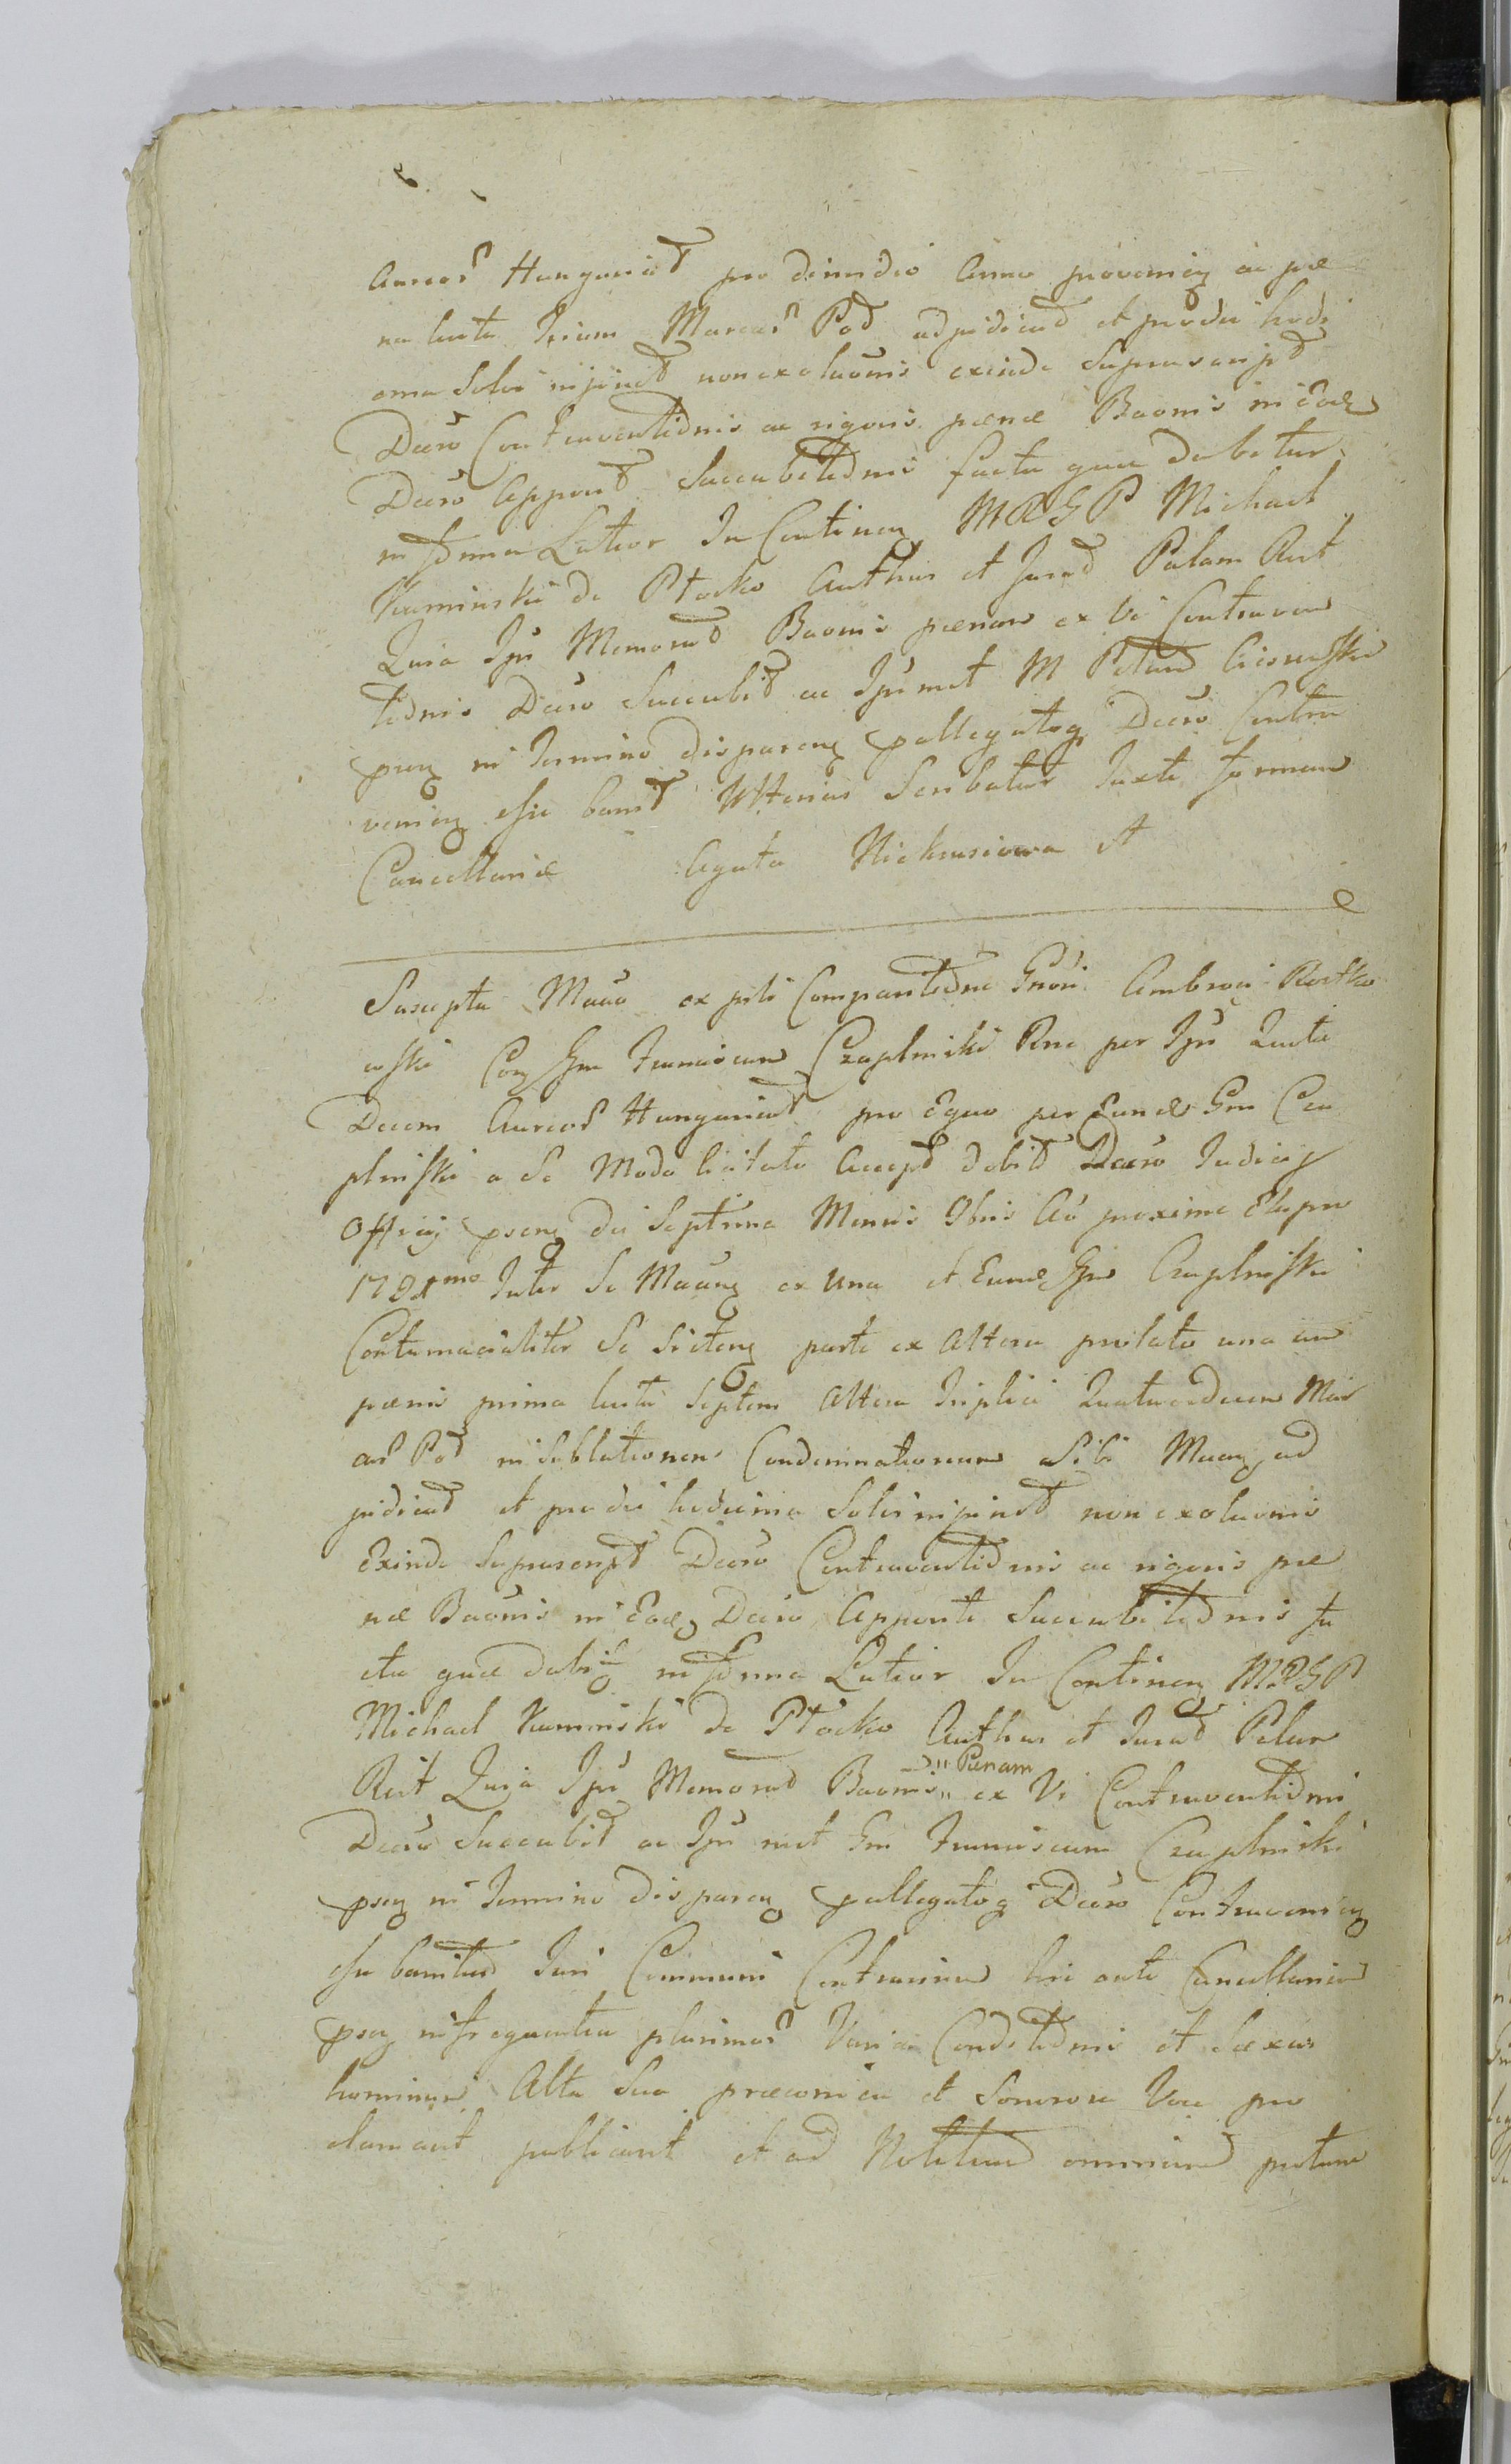 6.
Aureos Hungarical pro dimidio Anno provenien ac pœ
na luita Trium Marcar Pol adjudicat et pro die hodi
erna Solvi injunct non exoluonis exinde Suprascript
Decro Contraventionis ac rigoris pœnæ Baonis in Eod
Decro Apposit Succubitionis facta quæ debetur
in forma Latior In Continen MGSP Michael
Kaminski de Płocko Authus et Jurad Palam Rect
Quia Ipse Memorat Baonis pœnam ex Vi Contraven
tionis Decro Succubit ac Ipsumet M Petrum
pren in Termino disparen pallegatog Decro Contra
venien esse banit Ulterius Scribatur Juxta formam
Cancellariæ Agata et
Suscepta Maco ex psti Comparitione Gnosi Ambrosii
Con Gm Franciscum Czaplinski Rne per Ipsu Luita
Decem Aureos Hungarical pro Equo per Eund Gm Cza
plinski a Se Modo licitato Accept debit Decro Judicij
Officij psen die Septima Mensis 9bris Ao proxime Elapso
1791mo Inter Se Macng ex Una et Eund Gm Czaplinski
Contumacialiter Se Sisteng parte ex Altera prolato una cum
pœnis prima luita Septem Altera Triplici Quatuordecim Mar
car Pol in Sublationem Condemnationum Sibi Macng ad
judicat et pro die hodierna Solvi injunct non exoluonis
Exinde Suprascript Decro Contraventionis ac rigoris pœ
næ Baonis in Eod Decro Apposita Succubitionis fa
cta quæ debit in forma Latior In Continen MPSP
Michael Kaminski de Płocko Authus et Jurat Palam
Rect Quia Ipse Memorat Baonis " Pœnam " ex Vi Contraventioni
Decro Succubit ac Ipsu met Gm Franciscum Czaplinski
psen in Termino disparen pallegatog Decro Contravenien
esse banitum Juri Communi Contrarium hic ante Cancellariam
psen in frequentia plurimar Variæ Conditionis et Sexus
hominum Alta Sua præconica et Sonorosa Voce pro
clamavit publicavit et ad Notitiam omnium